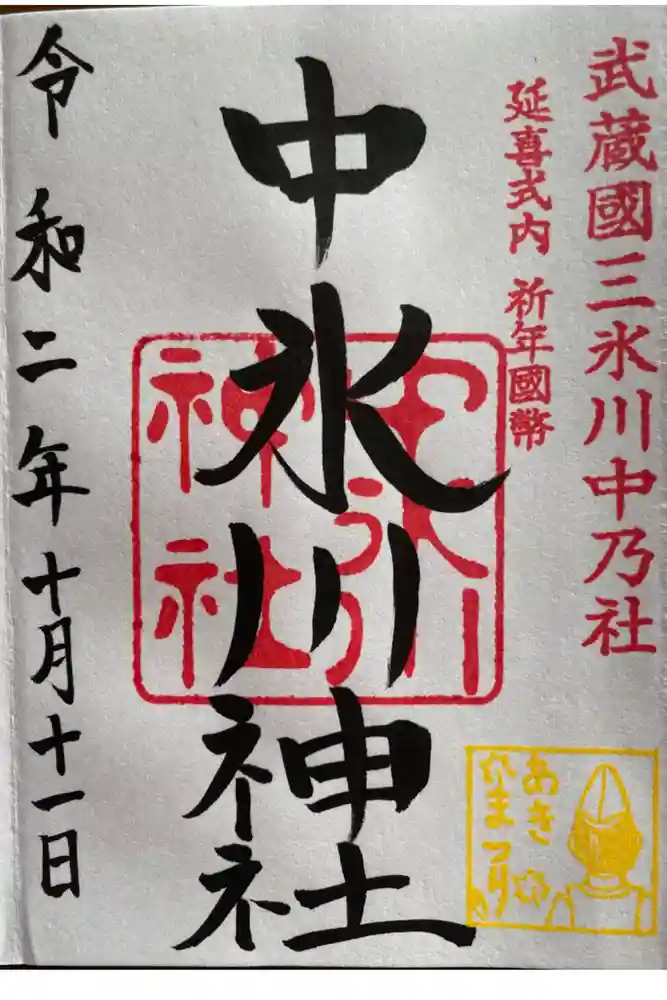 武蔵國三氷川中乃社
延喜式内 祈年國幣
中氷川神社
中氷川
神社
令和二年十月十一日
あき
まつり